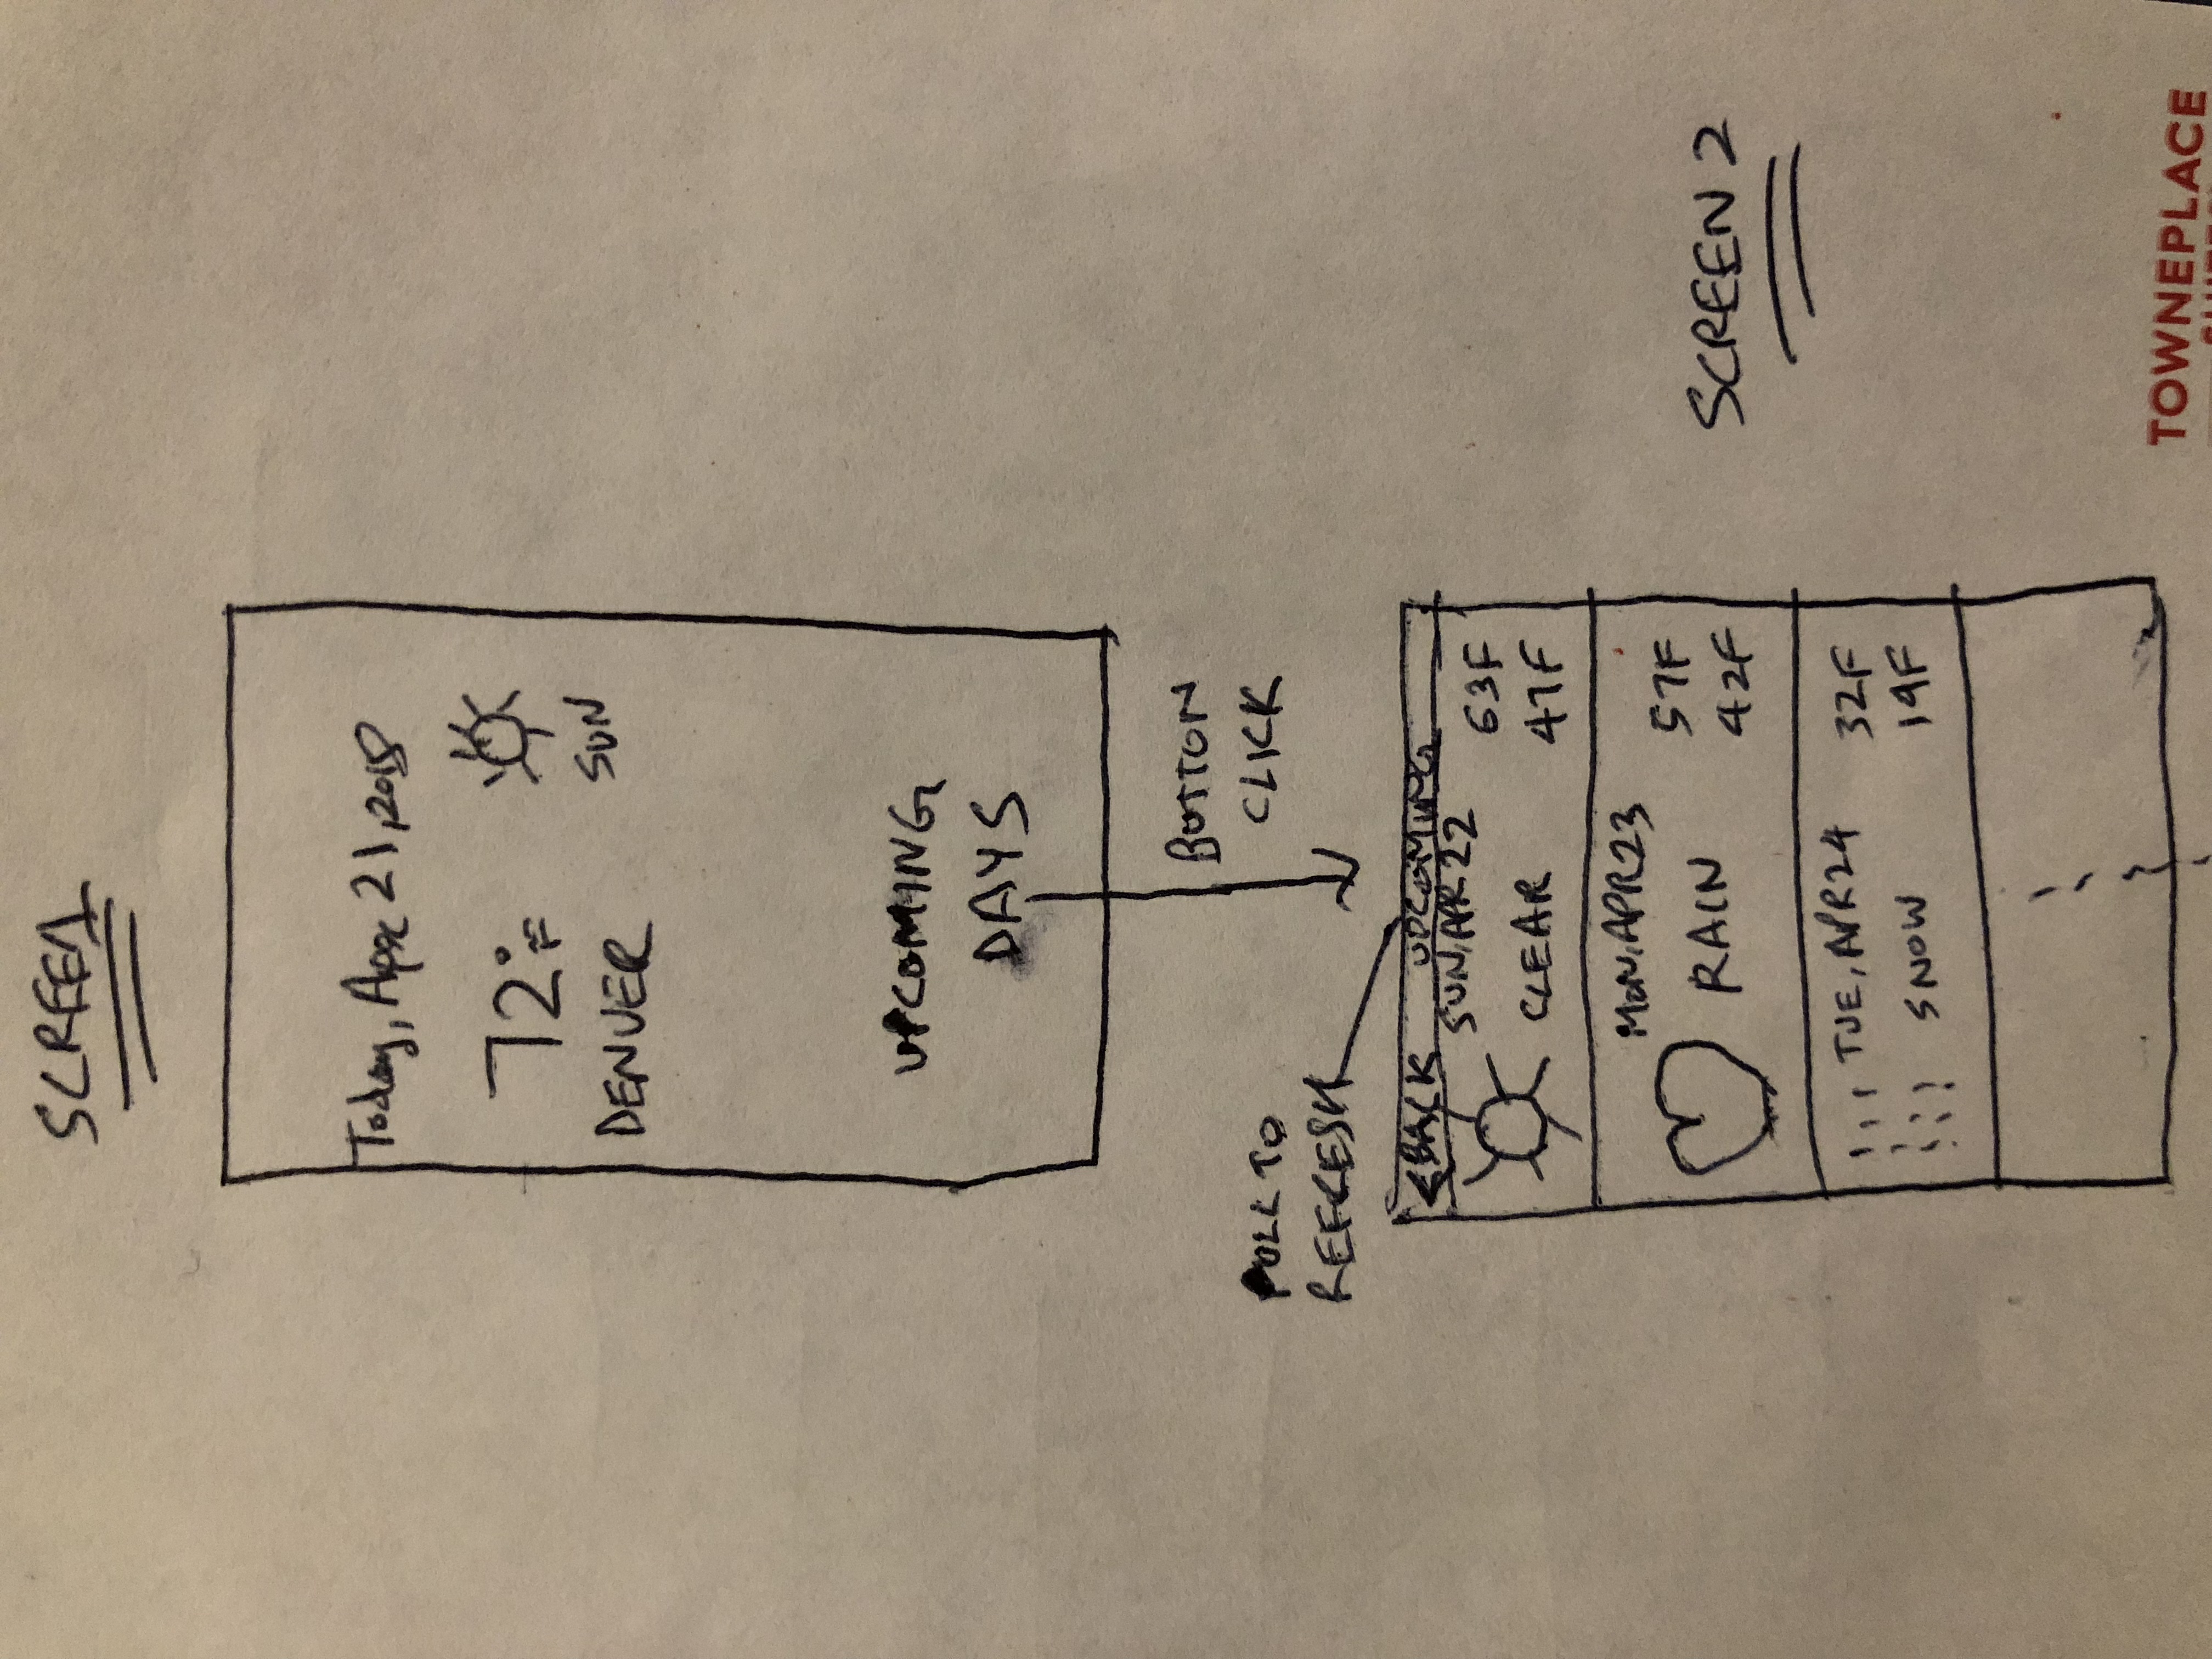 SCREEN1
Today, Apr 21, 2018
72°F
SUN
DENVER
UPCOMING
DAYS
BUTTON
CLICK
PULL TO
REFRESH
<BACK UPCOMING
SUN, APR 22
63F
CLEAR
47F
MON, APR 23
57F
RAIN
42F
TUE, APR 24
32F
SNOW
19F
SCREEN 2
TOWNEPLACE